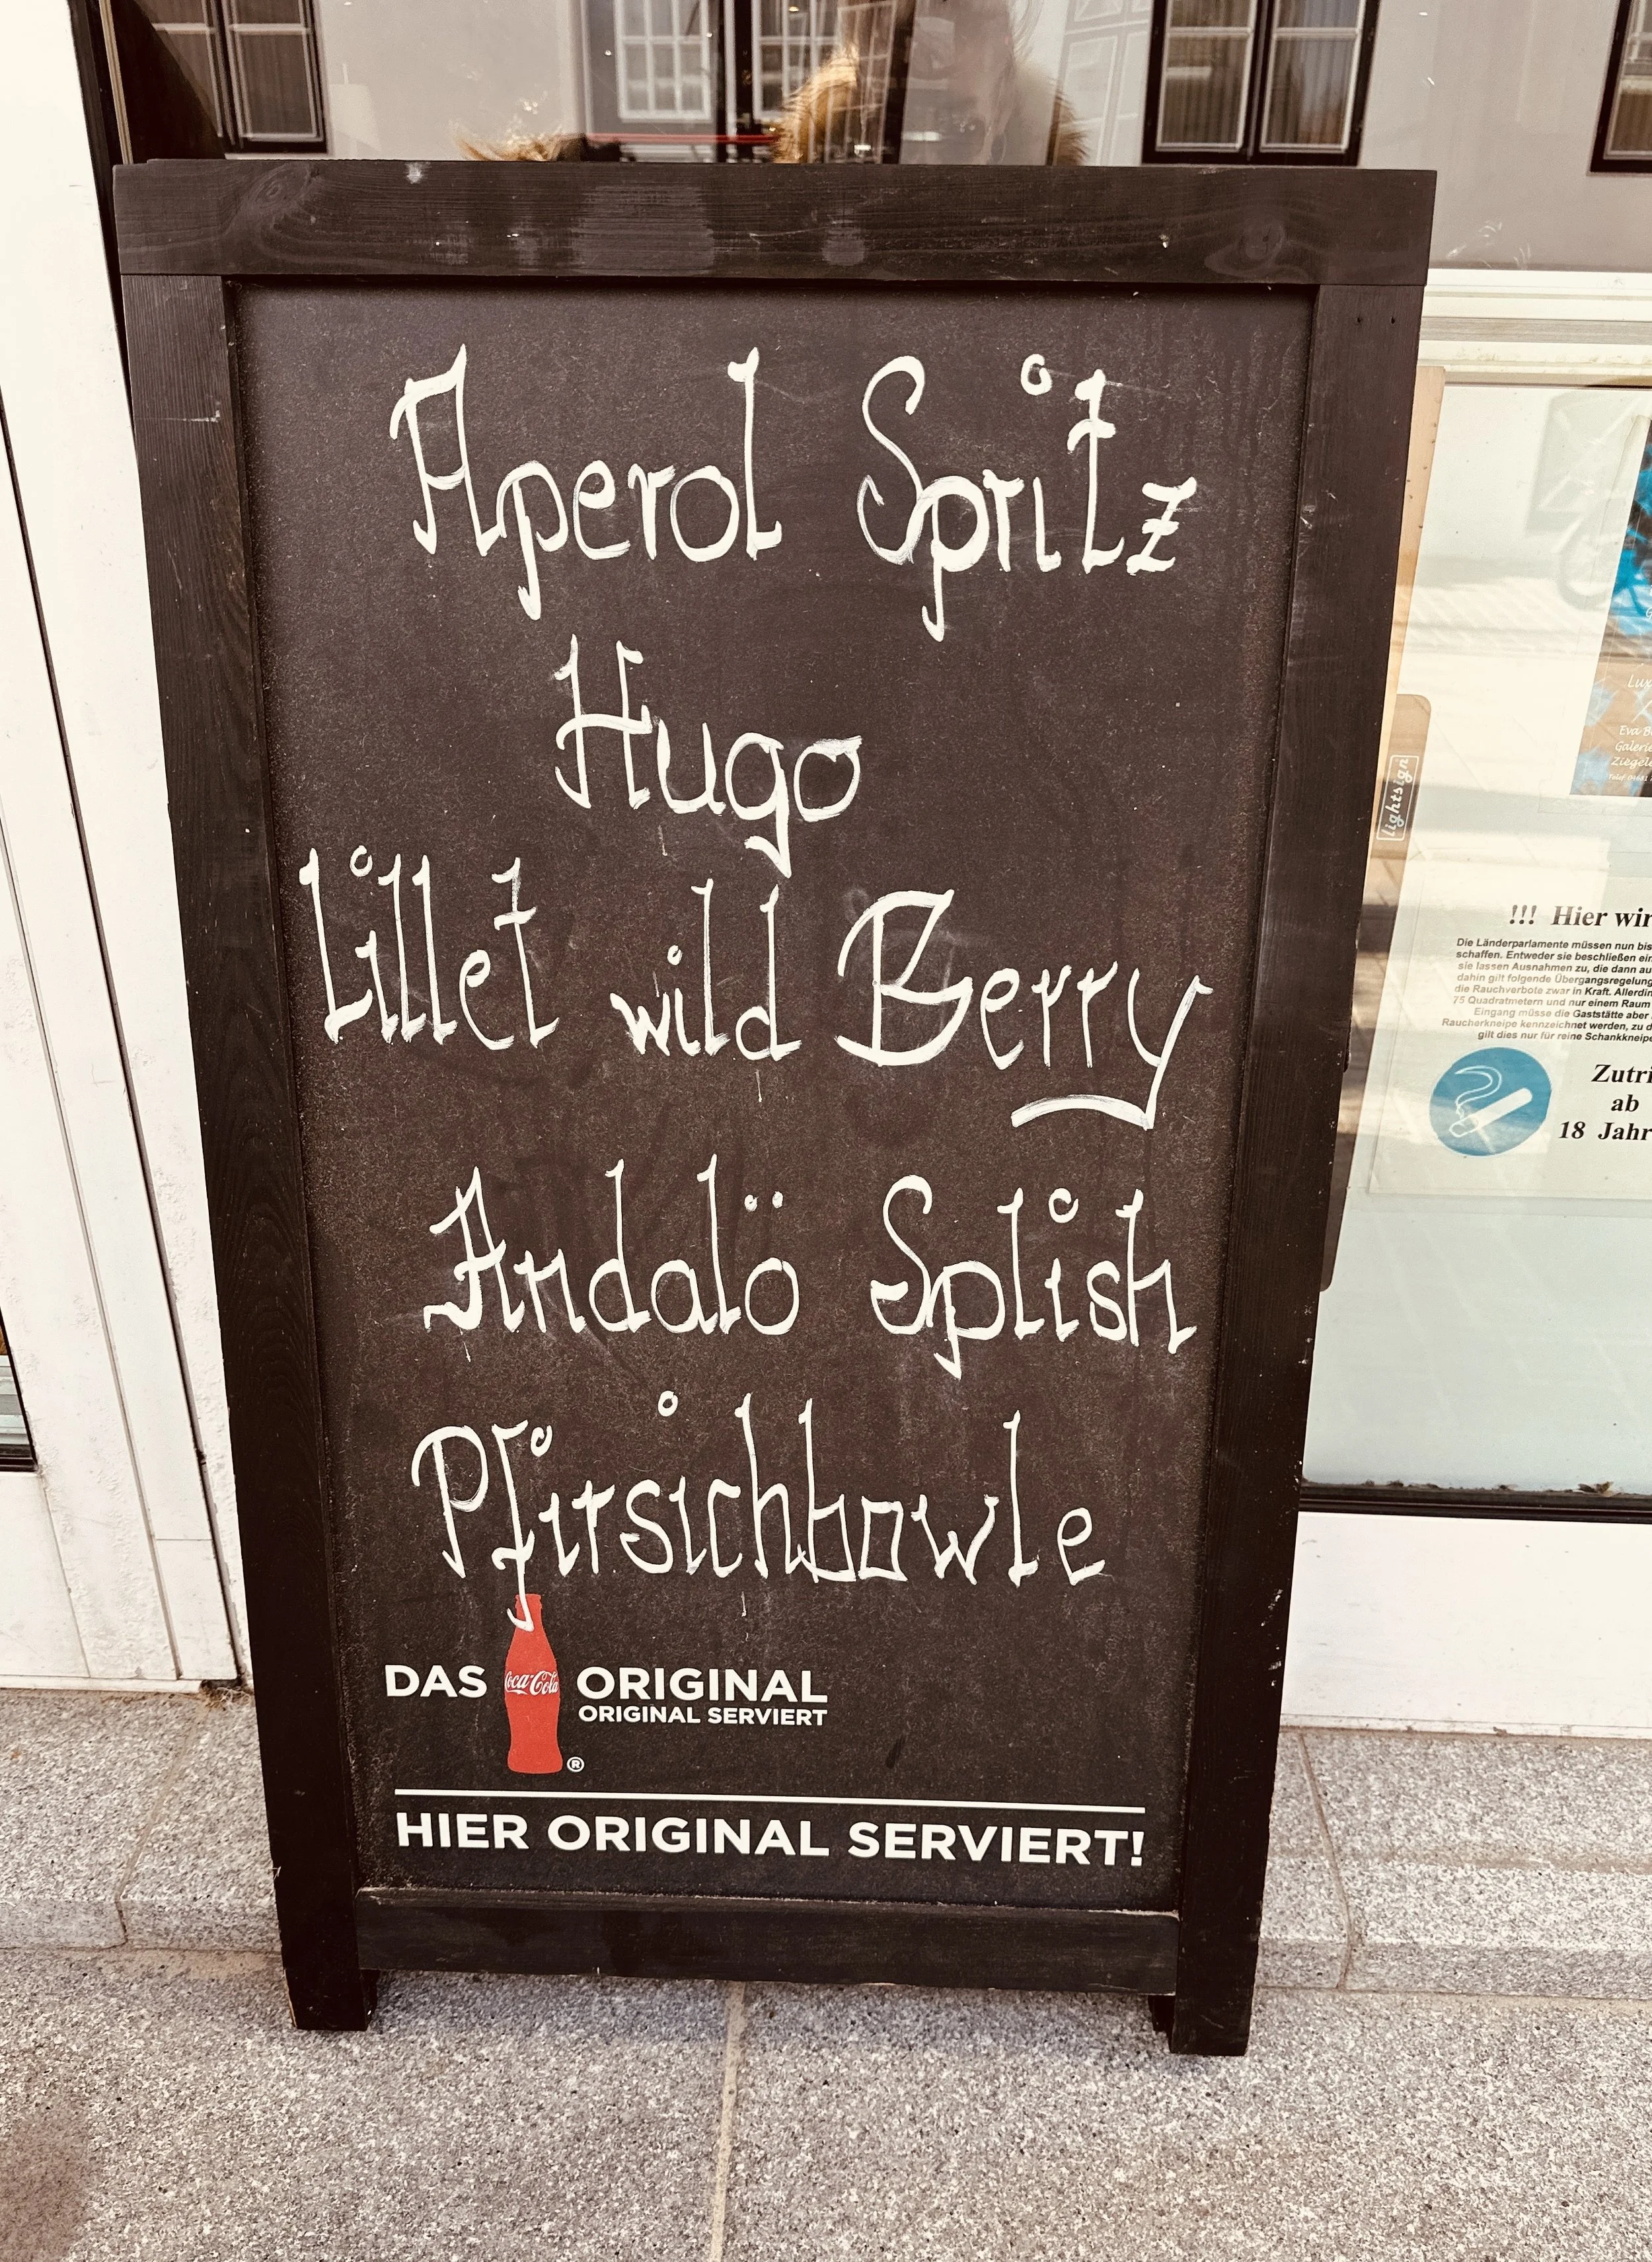 Aperol Spritz
Hugo
Lillet wild Berry
Andalö Splish
Pfirsichbowle
DAS Coca-Cola ORIGINAL
ORIGINAL SERVIERT
®
HIER ORIGINAL SERVIERT!
lightsign
Lux
Eva B
Galerie
Ziegel
!!! Hier wir
Die Länderparlamente müssen nun bis
schaffen. Entweder sie beschließen ein
sie lassen Ausnahmen zu, die dann au
dahin gilt folgende Übergangsregelung
die Rauchverbote zwar in Kraft. Allerdin
75 Quadratmetern und nur einem Raum
Eingang müsse die Gaststätte aber
Raucherkneipe kennzeichnet werden, zu d
gilt dies nur für reine Schankkneipe
Zutri
ab
18 Jahr